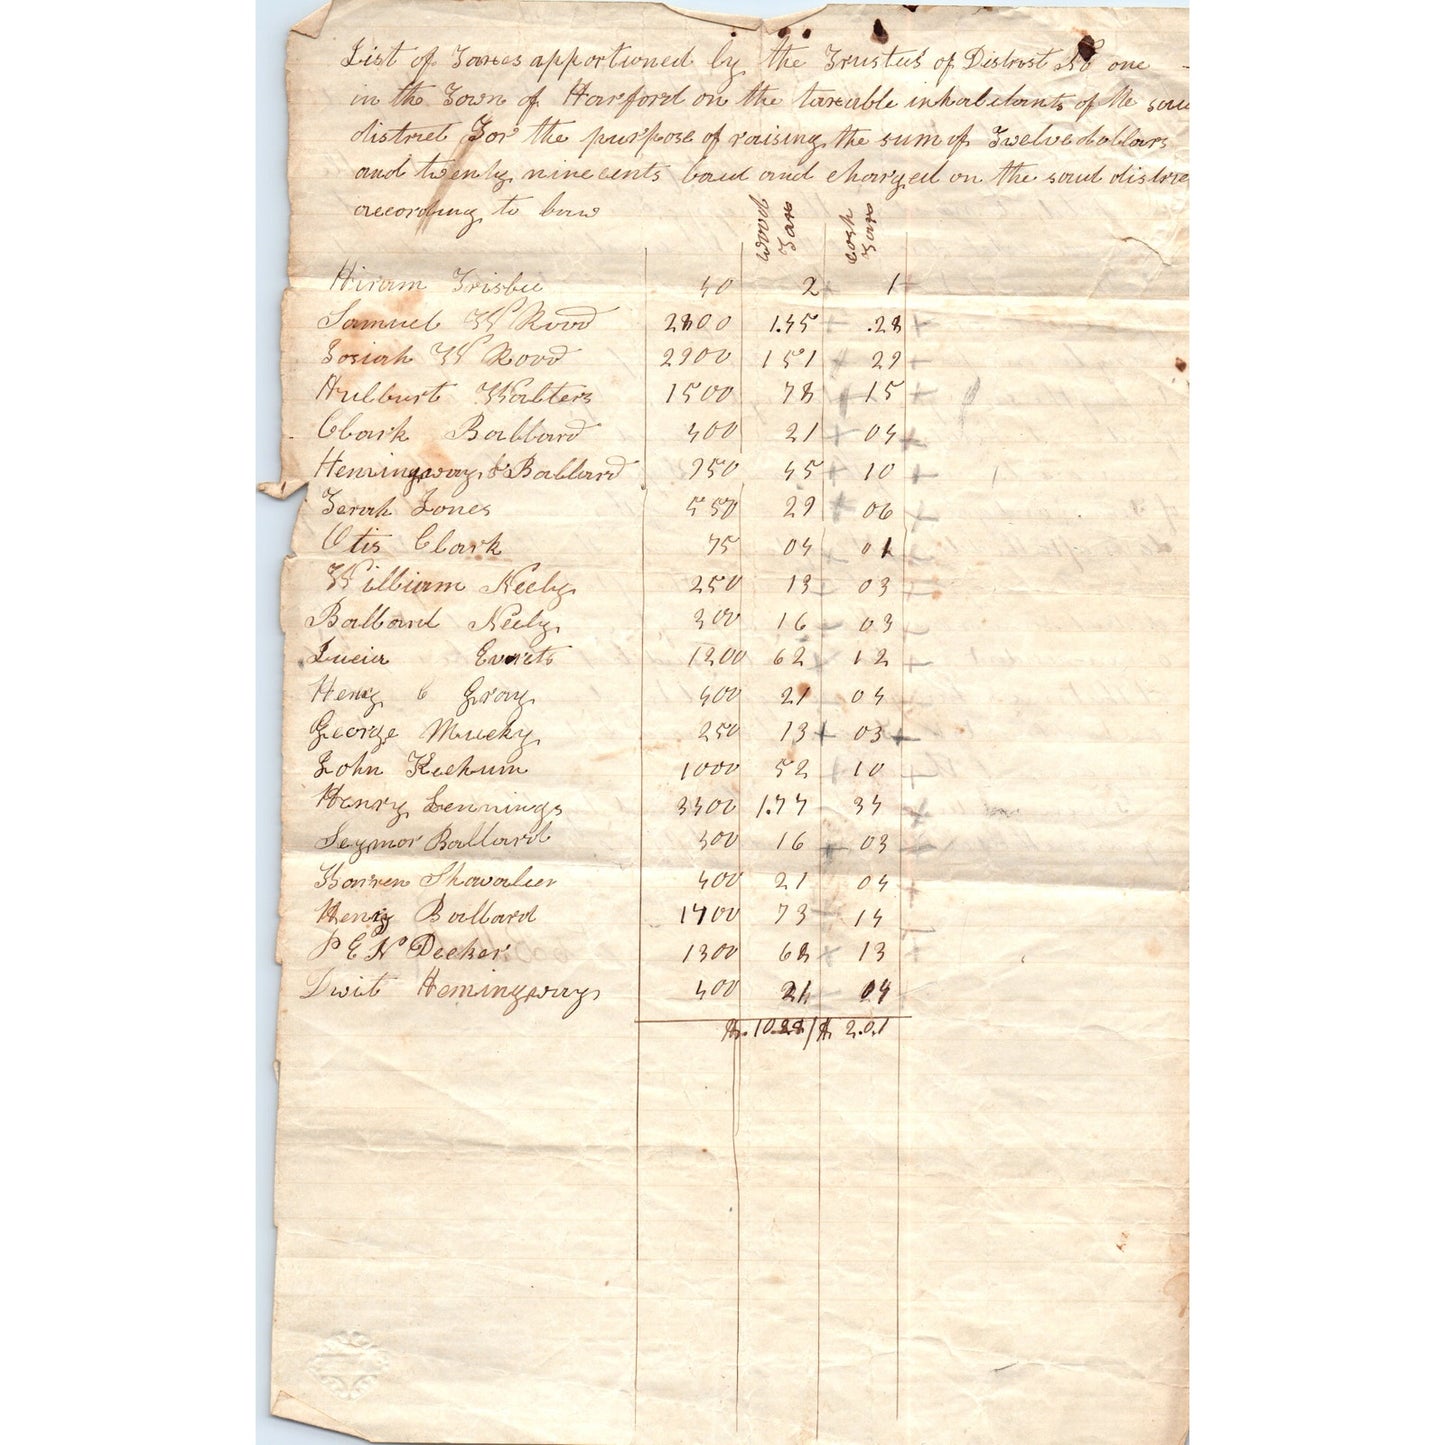 List of Taxes apportioned by the Trustees of District No one
in the Town of Harford on the taxable inhabitants of the said
district For the purpose of raising the sum of Twelve dollars
and twenty nine cents laid and charged on the said district
according to law
Wood Tax Cash Tax
Hiram Frisbee 40 2 1
Samuel W Rood 2800 1.45 .28
Josiah W Rood 2900 1 51 29
Hulburt Walters 1500 78 15
Clark Ballard 400 21 04
Hemingway & Ballard 950 45 10
Zerah Jones 550 29 06
Otis Clark 75 04 01
William Neely 250 13 03
Ballard Neely 300 16 03
Lucia Everts 1200 62 12
Henry C Gray 400 21 04
George Mucky 250 13 03
John Kechum 1000 52 10
Henry Jennings 3400 1.77 34
Seymor Ballard 300 16 03
Warren Shavalier 400 21 04
Henry Ballard 1400 73 14
P E N Decker 1300 68 13
Dwit Hemingway 400 21 04
$. 10.28 / $ 2.01